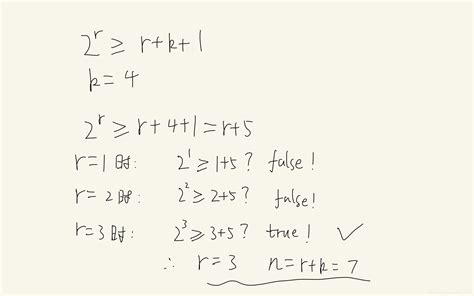 2^r ≥ r+k+1
k = 4
2^r ≥ r+4+1 = r+5
r=1时: 2^1 ≥ 1+5? false!
r=2时: 2^2 ≥ 2+5? false!
r=3时: 2^3 ≥ 3+5? true! ✓
∴ r=3 n=r+k=7